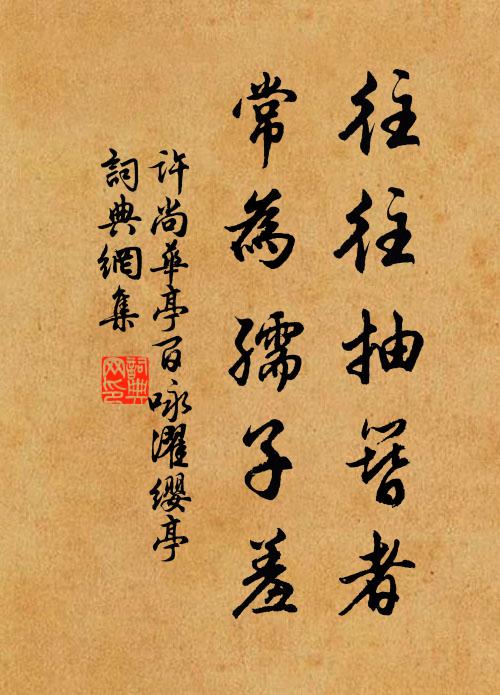 往往抽簪者
常為孺子羞
許尚華亭百咏濯纓亭
詞典網集
詞典网印